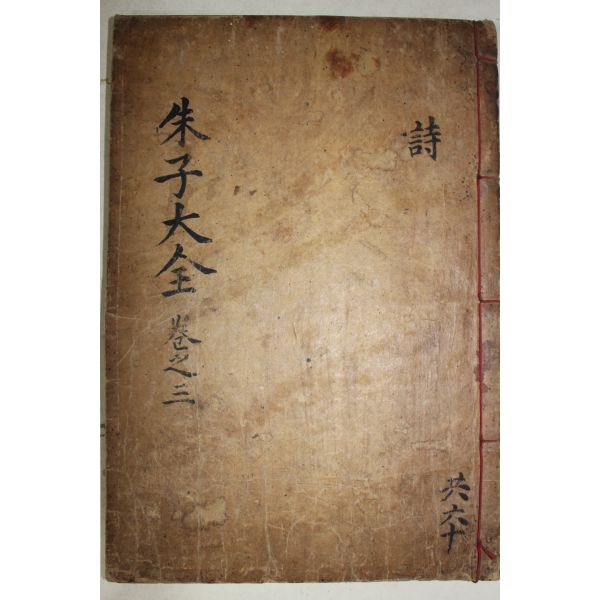 朱子大全 卷之三
詩
共六十